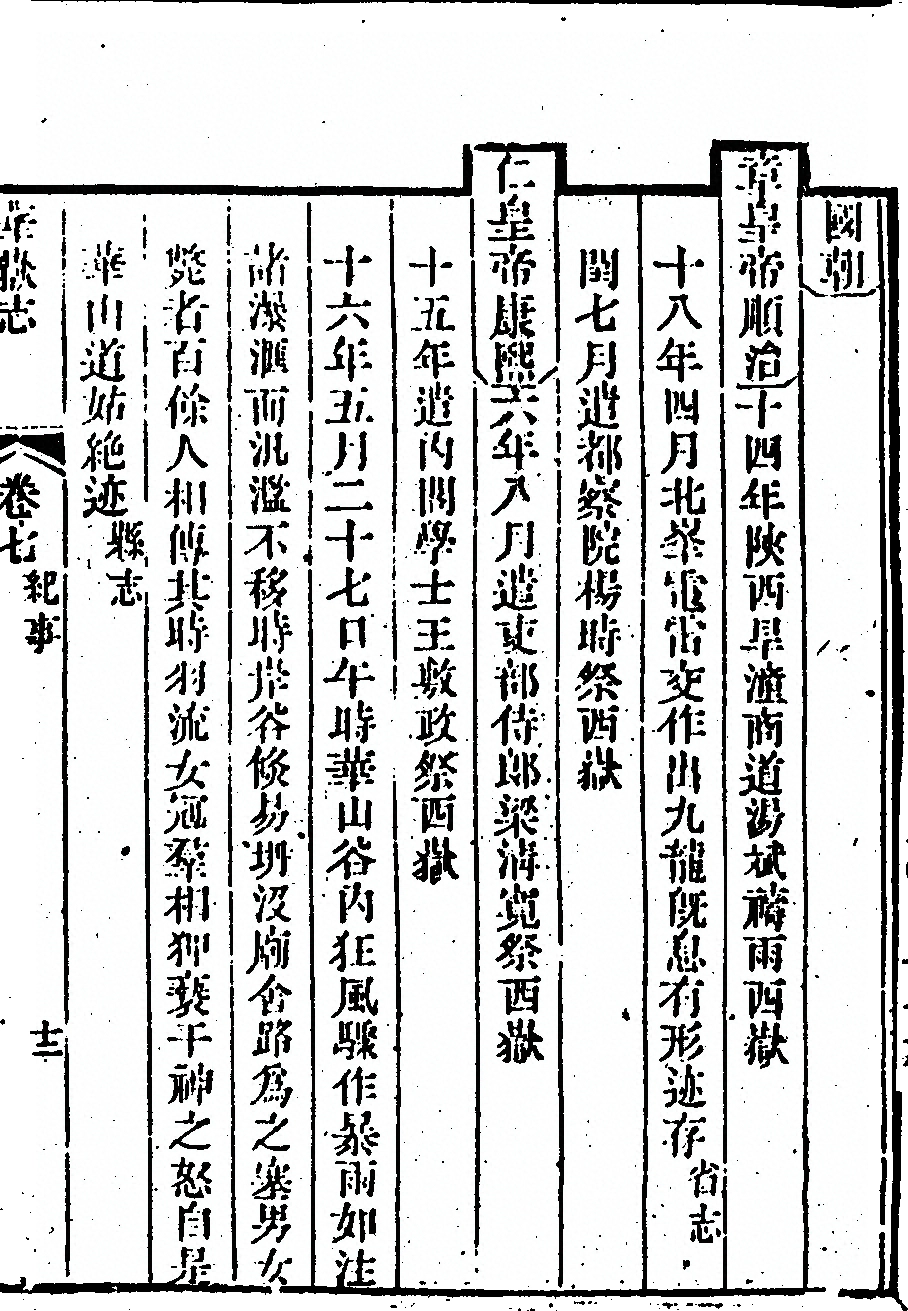 國朝
章皇帝順治十四年陝西旱潼商道湯斌禱雨西嶽
十八年四月北峯電雷交作出九龍旣息有形迹存省志
閏七月遣都察院楊時祭西嶽
仁皇帝康熙六年八月遣吏部侍郎梁清寬祭西嶽
十五年遣內閣學士王敷政祭西嶽
十六年五月二十七日午時華山谷內狂風驟作暴雨如注
諸瀑滙而汎濫不移時岸谷倐易坍沒廟舍路爲之塞男女
斃者百餘人相傳其時羽流女冠羣相狎褻干神之怒自是
華山道姑絶迹縣志
華嶽志 卷七 紀事 十一